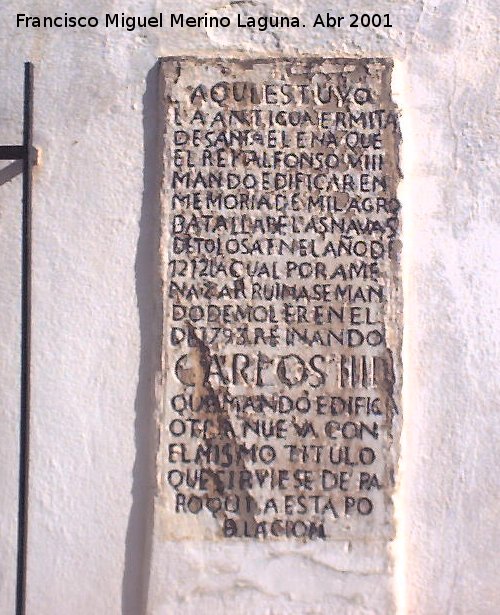 Francisco Miguel Merino Laguna. Abr 2001
AQUI ESTUVO
LA ANTIGUA ERMITA
DE SANTA ELENA QUE
EL REY ALFONSO VIII
MANDO EDIFICAR EN
MEMORIA DE MILAGRO
BATALLA DE LAS NAVAS
DE TOLOSA EN EL AÑO DE
1212 LA CUAL POR AME
NAZAR RUINA SE MAN
DO DEMOLER EN EL
DE 1793 REINANDO
CARLOS IIII
QUA MANDO EDIFIC
OTRA NUEVA CON
EL MISMO TITULO
QUE SIRVIESE DE PA
ROQUIA A ESTA PO
BLACION